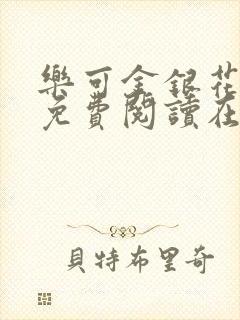 樂可金銀花
免費閱讀在
貝特布里奇